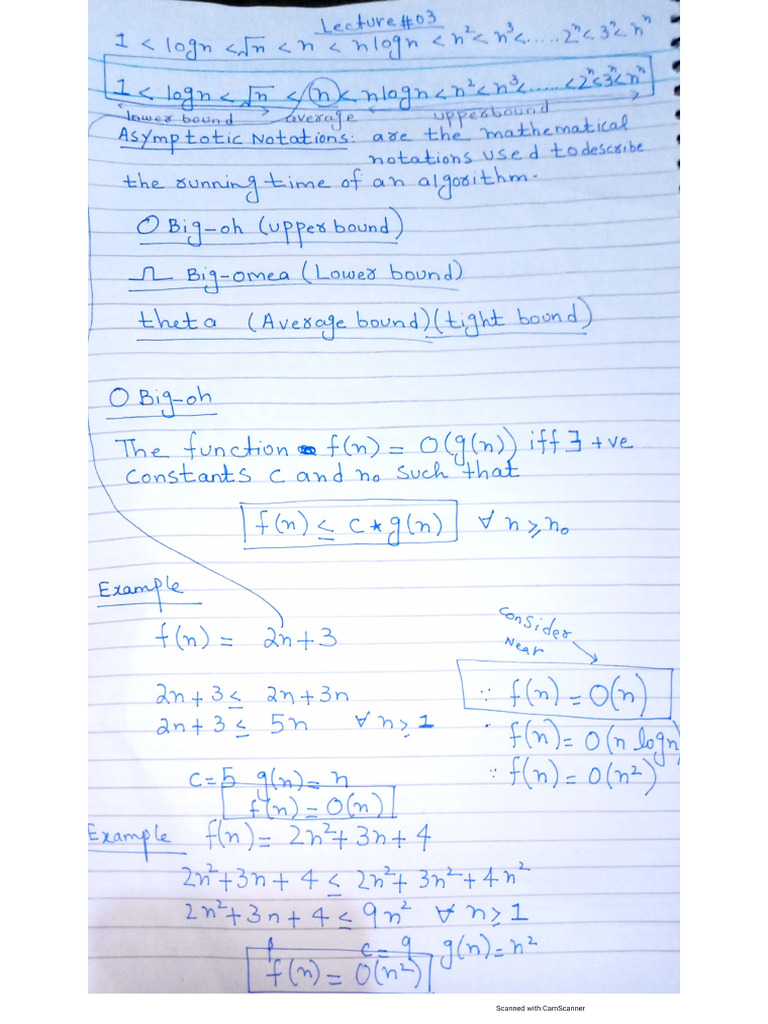 Lecture #03
1 < logn < √n < n < nlogn < n² < n³ < ..... 2ⁿ < 3ⁿ < nⁿ
1 < logn < √n < n < nlogn < n² < n³ < ..... < 2ⁿ < 3ⁿ < nⁿ
lower bound average upperbound
Asymptotic Notations: are the mathematical
notations used to describe
the running time of an algorithm.
O Big-oh (upper bound)
Ω Big-omea (Lower bound)
theta (Average bound) (tight bound)
O Big-oh
The function f(n) = O(g(n)) iff ∃ +ve
constants c and n₀ such that
f(n) ≤ c * g(n) ∀ n ≥ n₀
Example
f(n) = 2n+3
consider
Near
2n+3 ≤ 2n+3n
2n+3 ≤ 5n ∀ n ≥ 1
∵ f(n) = O(n)
f(n) = O(n logn)
∵ f(n) = O(n²)
c=5 g(n) = n
f(n) = O(n)
Example f(n) = 2n²+3n+4
2n²+3n+4 ≤ 2n²+3n²+4n²
2n²+3n+4 ≤ 9n² ∀ n ≥ 1
c=9 g(n)=n²
f(n) = O(n²)
Scanned with CamScanner